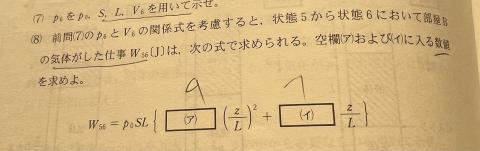 (7) p₆をp₀, S, L, V₆を用いて示せ。
(8) 前問(7)のp₆とV₆の関係式を考慮すると，状態5から状態6において部屋B
の気体がした仕事W₅₆〔J〕は，次の式で求められる。空欄(ア)および(イ)に入る数値
を求めよ。
9 7
W₅₆ = p₀SL { (ア) (z/L)² + (イ) z/L }